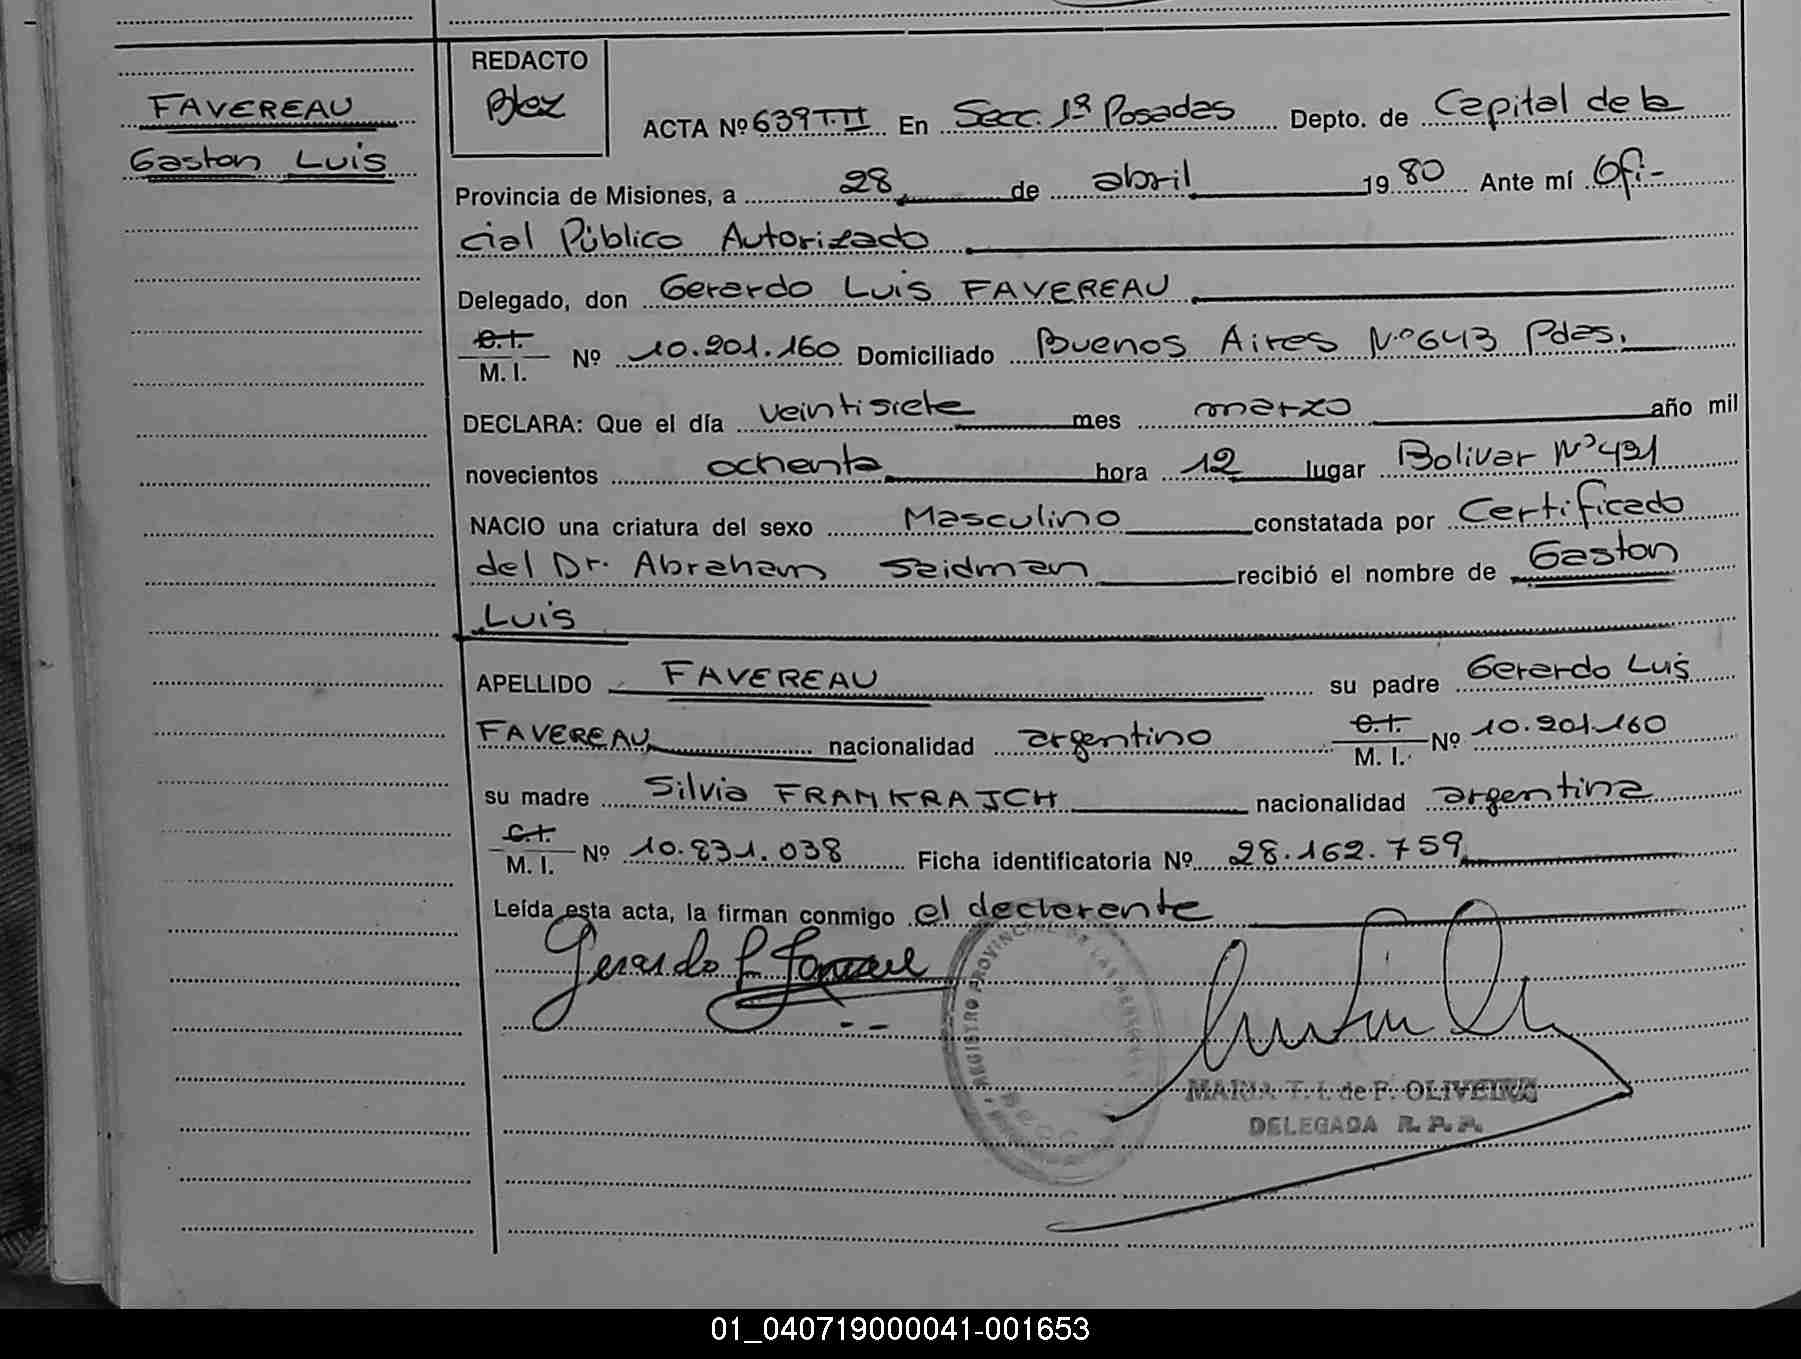 FAVEREAU
Gaston Luis
REDACTO
Blez
ACTA Nº 639 T.II En Secc. 1ª Posadas Depto. de Capital de la
Provincia de Misiones, a 28 de abril 1980 Ante mí Ofi-
cial Público Autorizado
Delegado, don Gerardo Luis FAVEREAU
C.I.
M. I. Nº 10.201.160 Domiciliado Buenos Aires Nº 643 Pdas.
DECLARA: Que el día veintisiete mes marzo año mil
novecientos ochenta hora 12 lugar Bolivar Nº 491
NACIO una criatura del sexo Masculino constatada por Certificado
del Dr. Abraham Seidman recibió el nombre de Gaston
Luis
APELLIDO FAVEREAU su padre Gerardo Luis
FAVEREAU nacionalidad argentino C.I. M. I. Nº 10.201.160
su madre Silvia FRAMKRAJCH nacionalidad argentina
C.I.
M. I. Nº 10.831.038 Ficha identificatoria Nº 28.162.759
Leída esta acta, la firman conmigo el declarente
Gerardo L
REGISTRO PROVINCIAL DE LAS PERSONAS
MARIA T. I. de F. OLIVEIRA
DELEGADA R. P. P.
01_040719000041-001653